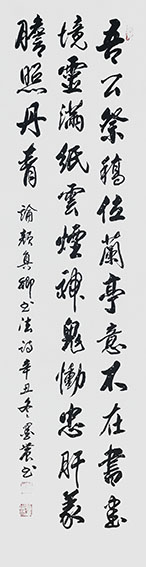 吾公祭稿位蘭亭意不在書書
境靈滿紙雲煙神鬼慟忠肝義
膽照丹青 論顏真卿书法詩辛丑冬墨農书